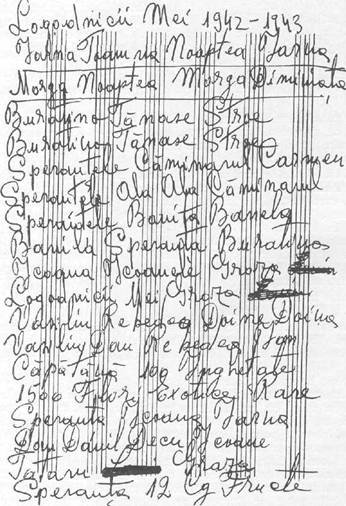 Logodnicii Mei 1942-1943
Iarna Toamna Noaptea Iarna
Morga Noaptea Morga Dimineața
Buratino Tănase Stroe
Buratino Tănase Stroe
Speranțele Căminarul Carmen
Speranțele Ala Ala Căminarul
Speranțele Banița Banela
Banița Speranța Buratinos
Icoana Icoanele Groza
Logodnicii Mei Groza
Vasiliu Repedea Doina Doina
Vasiliu Dan Repedea
Căpățână 100 Inghetate
1500 Flori Exotice Rare
Speranța Icoana Iarna
Dom Danil Decu Icoane
Tătaru Groza
Speranța 12 Cg Fructe